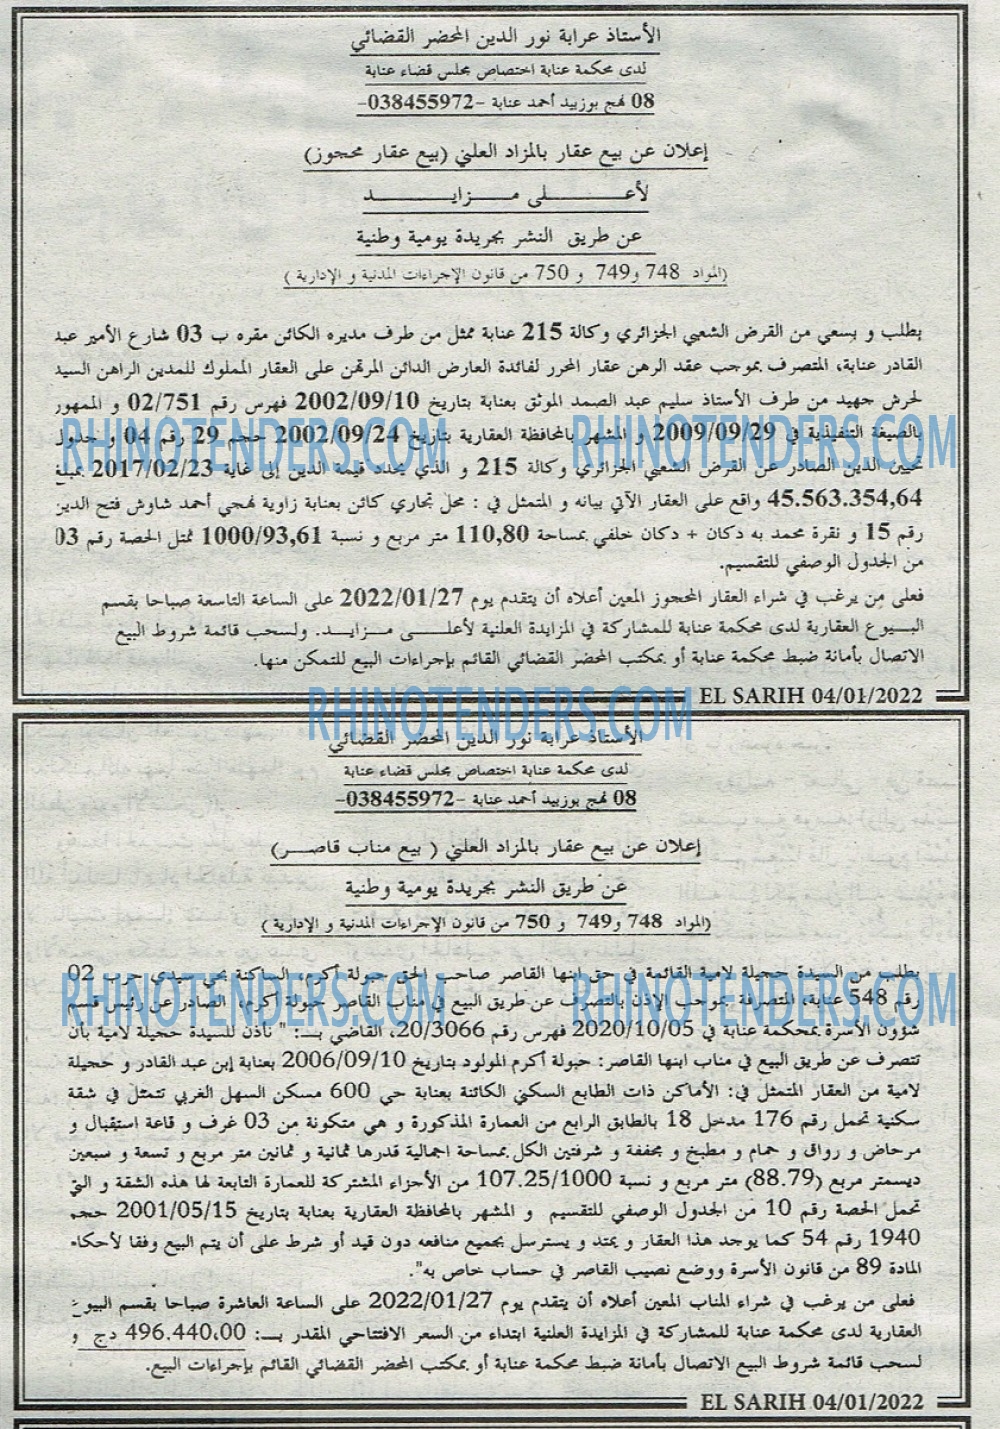 الأستاذ عرابة نور الدين المحضر القضائي
لدى محكمة عنابة اختصاص مجلس قضاء عنابة
08 نهج بوزبيد أحمد عنابة -038455972-
إعلان عن بيع عقار بالمزاد العلني (بيع عقار محجوز)
لأعـــلى مـــزايـــد
عن طريق النشر بجريدة يومية وطنية
(المواد 748 و749 و 750 من قانون الإجراءات المدنية و الإدارية )
بطلب و بسعي من القرض الشعبي الجزائري وكالة 215 عنابة ممثل من طرف مديره الكائن مقره ب 03 شارع الأمير عبد
القادر عنابة، المتصرف بموجب عقد الرهن عقار المحرر لفائدة العارض الدائن المرتهن على العقار المملوك للمدين الراهن السيد
لحرش جهيد من طرف الأستاذ سليم عبد الصمد الموثق بعنابة بتاريخ 2002/09/10 فهرس رقم 02/751 و الممهور
بالصيغة التنفيذية في 2009/09/29 و المشهر بالمحافظة العقارية بتاريخ 2002/09/24 حجم 29 رقم 04 و جدول
تحيين الدين الصادر عن القرض الشعبي الجزائري وكالة 215 و الذي يحدد قيمة الدين إلى غاية 2017/02/23 بمبلغ
45.563.354,64 واقع على العقار الآتي بيانه و المتمثل في : محل تجاري كائن بعنابة زاوية نهجي أحمد شاوش فتح الدين
رقم 15 و نقرة محمد به دكان + دكان خلفي بمساحة 110,80 متر مربع و نسبة 1000/93,61 تمثل الحصة رقم 03
من الجدول الوصفي للتقسيم.
فعلى من يرغب في شراء العقار المحجوز المعين أعلاه أن يتقدم يوم 2022/01/27 على الساعة التاسعة صباحا بقسم
البيوع العقارية لدى محكمة عنابة للمشاركة في المزايدة العلنية لأعلـــى مـزايـد. ولسحب قائمة شروط البيع
الاتصال بأمانة ضبط محكمة عنابة أو بمكتب المحضر القضائي القائم بإجراءات البيع للتمكن منها.
EL SARIH 04/01/2022
RHINOTENDERS.COM
RHINOTENDERS.COM
RHINOTENDERS.COM
الأستاذ عرابة نور الدين المحضر القضائي
لدى محكمة عنابة اختصاص مجلس قضاء عنابة
08 نهج بوزبيد أحمد عنابة -038455972-
إعلان عن بيع عقار بالمزاد العلني ( بيع مناب قاصـر)
عن طريق النشر بجريدة يومية وطنية
(المواد 748 و749 و 750 من قانون الإجراءات المدنية و الإدارية )
بطلب من السيدة حجيلة لامية القائمة في حق ابنها القاصر صاحب الحق حبولة أكرم، الساكنة بحي سيدي حرب 02
رقم 548 عنابة، المتصرفة بموجب الإذن بالتصرف عن طريق البيع في مناب القاصر حبولة أكرم، الصادر عن رئيس قسم
شؤون الأسرة بمحكمة عنابة في 2020/10/05 فهرس رقم 20/3066، القاضي بــ: " نأذن للسيدة حجيلة لامية بأن
تتصرف عن طريق البيع في مناب ابنها القاصر: حبولة أكرم المولود بتاريخ 2006/09/10 بعنابة إبن عبد القادر و حجيلة
لامية من العقار المتمثل في: الأماكن ذات الطابع السكني الكائنة بعنابة حي 600 مسكن السهل الغربي تتمثل في شقة
سكنية تحمل رقم 176 مدخل 18 بالطابق الرابع من العمارة المذكورة و هي متكونة من 03 غرف و قاعة استقبال و
مرحاض و رواق و حمام و مطبخ و مجففة و شرفتين الكل بمساحة اجمالية قدرها ثمانية و ثمانين متر مربع و تسعة و سبعين
ديسمتر مربع (88.79) متر مربع و نسبة 107.25/1000 من الأجزاء المشتركة للعمارة التابعة لها هذه الشقة و التي
تحمل الحصة رقم 10 من الجدول الوصفي للتقسيم و المشهر بالمحافظة العقارية بعنابة بتاريخ 2001/05/15 حجم
1940 رقم 54 كما يوجد هذا العقار و يمتد و يسترسل بجميع منافعه دون قيد أو شرط على أن يتم البيع وفقا لأحكام
المادة 89 من قانون الأسرة ووضع نصيب القاصر في حساب خاص به".
فعلى من يرغب في شراء المناب المعين أعلاه أن يتقدم يوم 2022/01/27 على الساعة العاشرة صباحا بقسم البيوع
العقارية لدى محكمة عنابة للمشاركة في المزايدة العلنية ابتداء من السعر الافتتاحي المقدر بــ: 496.440،00 دج و
لسحب قائمة شروط البيع الاتصال بأمانة ضبط محكمة عنابة أو بمكتب المحضر القضائي القائم بإجراءات البيع.
EL SARIH 04/01/2022
RHINOTENDERS.COM
RHINOTENDERS.COM